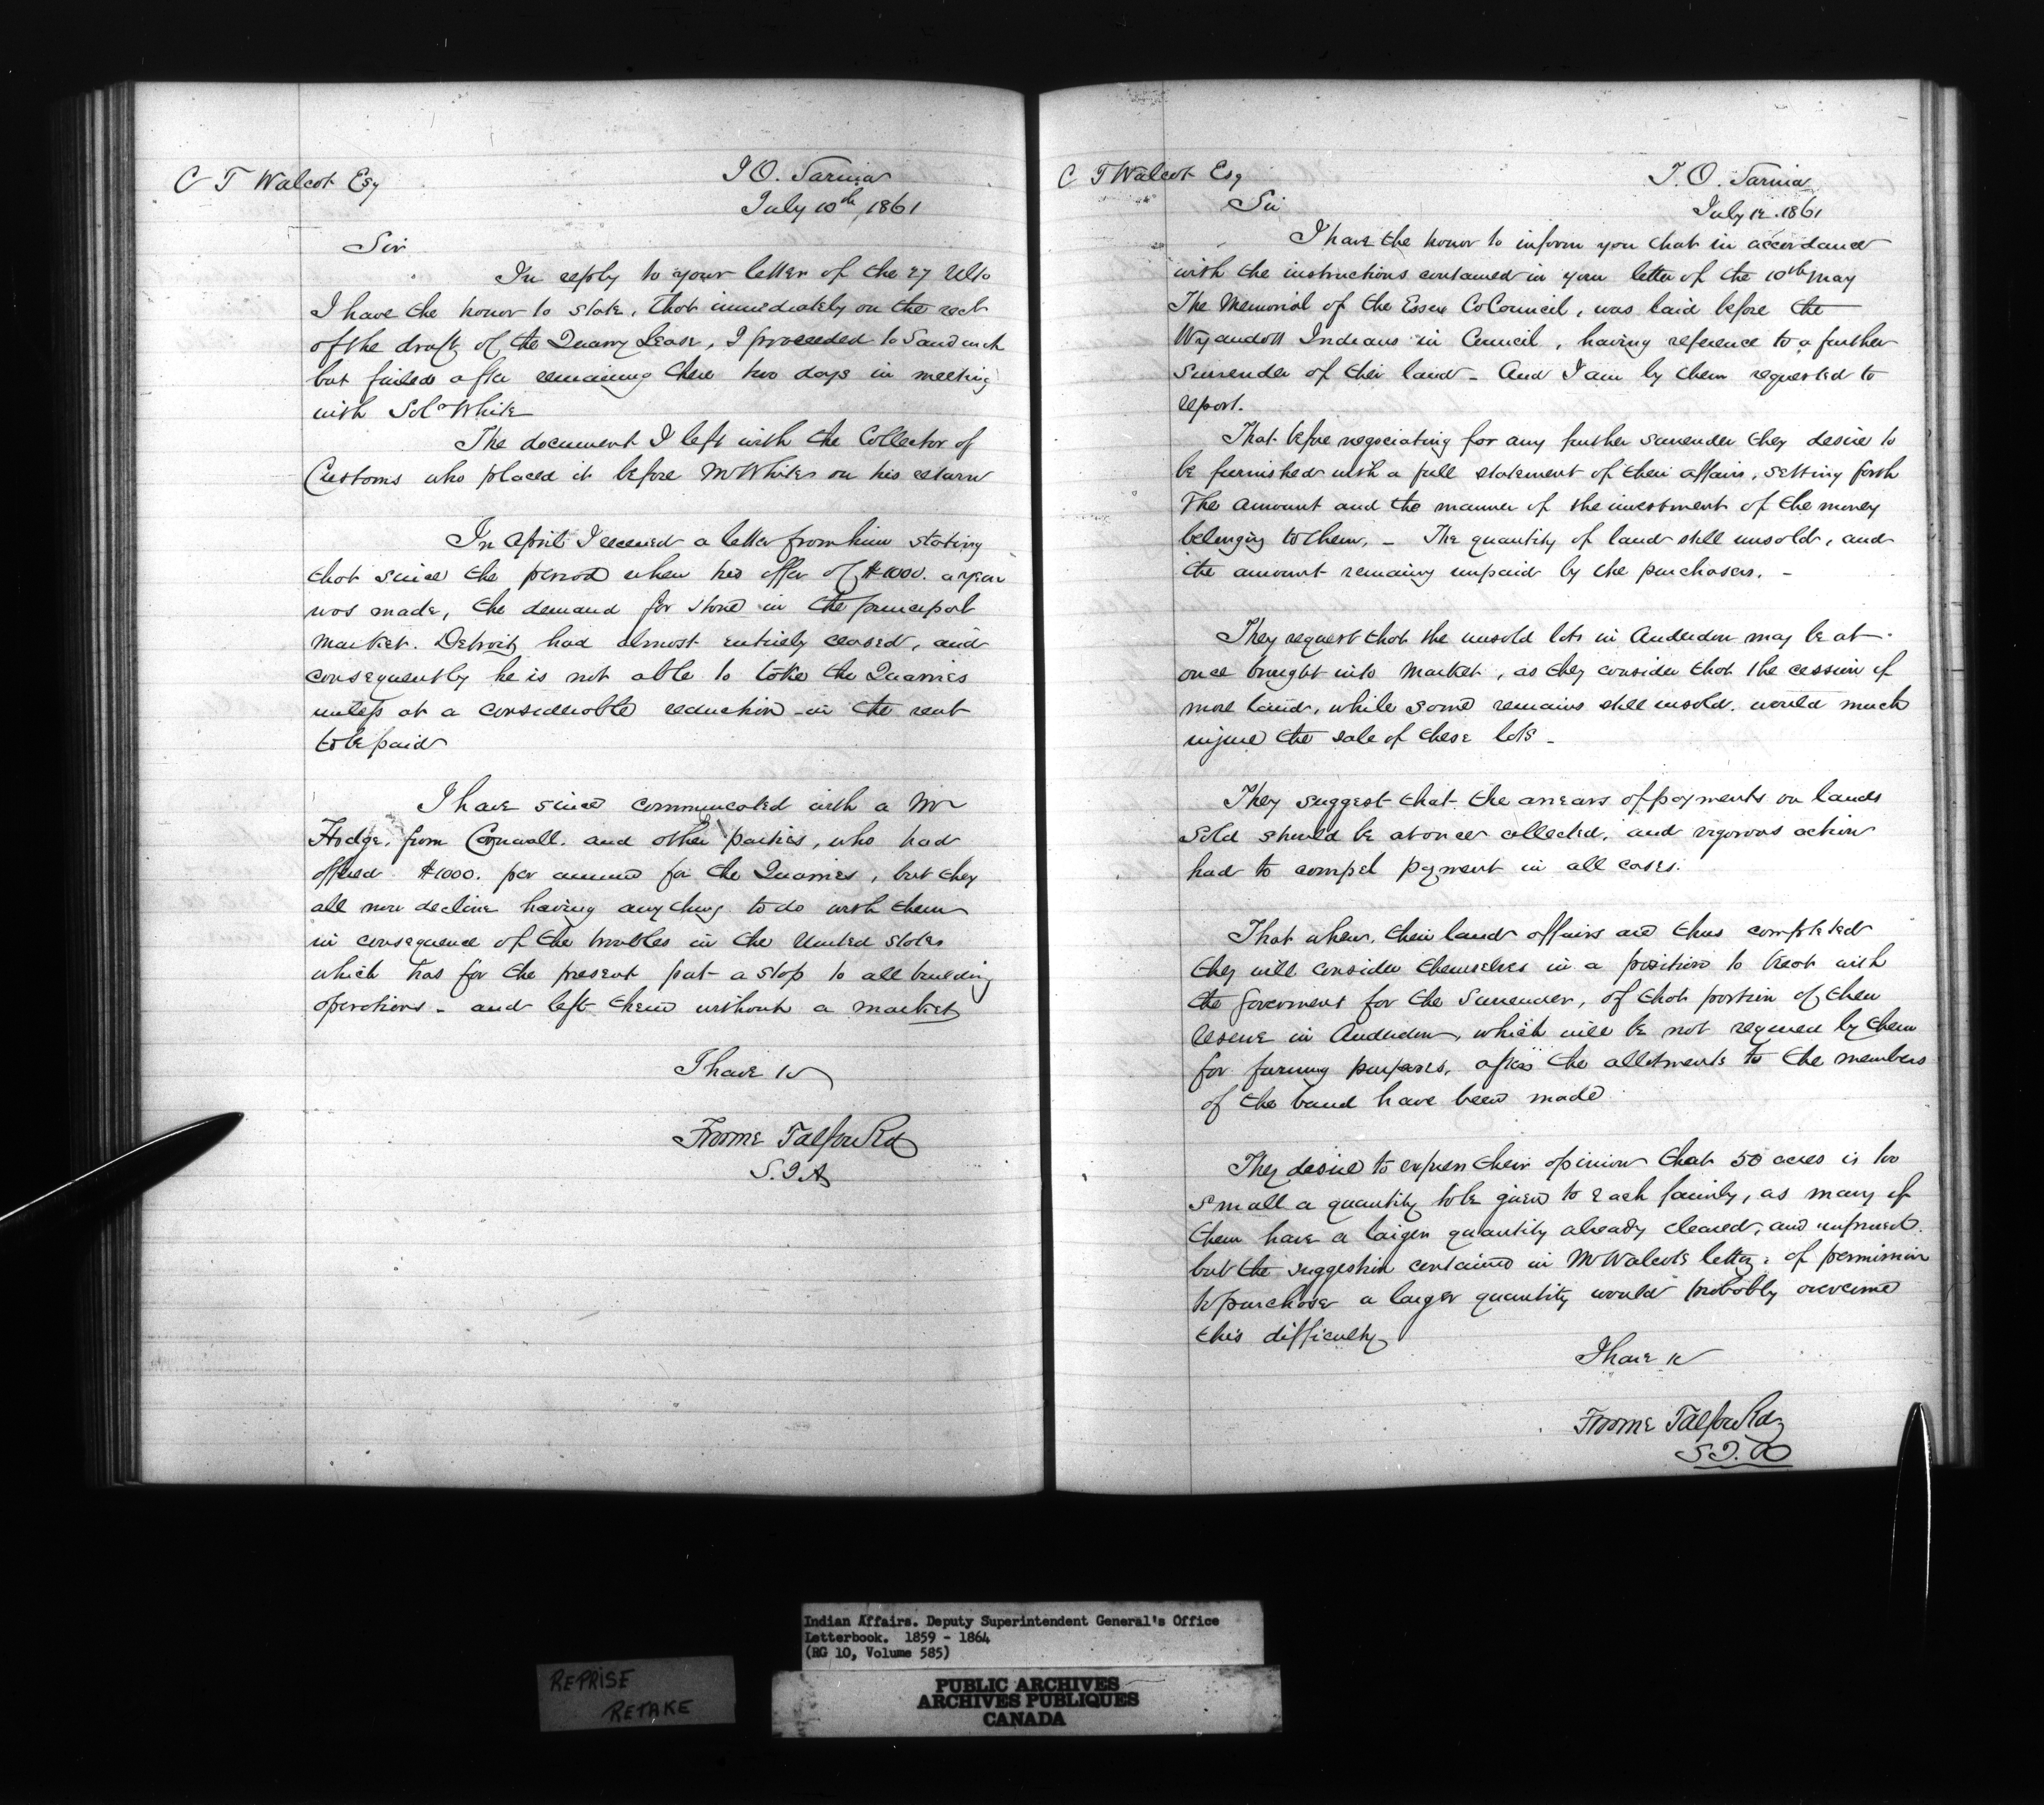 C T Walcot Esq
I O. Sarnia
July 10th, 1861
Sir
In reply to your letter of the 27 Ulto
I have the honor to state, that immediately on the rect
of the draft of the Quarry Lease, I proceeded to Sandwich
but failed after remaining there two days in meeting
with Soln White
The document I left with the Collector of
Customs who placed it before Mr White on his return
In April I received a letter from him stating
that since the period when his offer of $1000. a year
was made, the demand for stone in the principal
market. Detroit, had almost entirely ceased, and
consequently he is not able to take the Quarries
unless at a considerable reduction in the rent
to be paid
I have since communicated with a Mr
Hodge, from Cornwall. and other parties, who had
offered $1000. per annum for the Quarries, but they
all now decline having anything to do with them
in consequence of the troubles in the United States
which has for the present put a stop to all building
operations - and left them without a market
I have &c
Froome Talfourd
S.I.A
C T Walcot Esq
I. O. Sarnia
July 12. 1861
Sir
I have the honor to inform you that in accordance
with the instructions contained in your letter of the 10th May
The Memorial of the Essex Co Council, was laid before the
Wyandott Indians in Council, having reference to a further
surrender of their land - And I am by them requested to
report.
That before negociating for any further surrender they desire to
be furnished with a full statement of their affairs, setting forth
the amount and the manner of the investment of the money
belonging to them, - The quantity of land still unsold, and
the amount remaining unpaid by the purchasers. -
They request that the unsold lots in Anderdon may be at
once brought into market, as they consider that the cession of
more land, while some remains still unsold. would much
injure the sale of these lots -
They suggest that the arrears of payments on lands
sold should be at once collected, and vigorous action
had to compel payment in all cases.
That when, their land affairs are thus completed
they will consider themselves in a position to treat with
the Government for the Surrender, of that portion of their
reserve in Anderdon, which will be not required by them
for farming purposes, after the allotments to the members
of the band have been made
They desire to express their opinion that 50 acres is too
small a quantity to be given to each family, as many of
them have a larger quantity already cleared, and improved.
but the suggestion contained in Mr Walcots letter, of permission
to purchase a larger quantity would probably overcome
this difficulty
I have &c
Froome Talfourd
S.I.A
Indian Affairs. Deputy Superintendent General's Office
Letterbook. 1859 - 1864
(RG 10, Volume 585)
REPRISE
RETAKE
PUBLIC ARCHIVES
ARCHIVES PUBLIQUES
CANADA